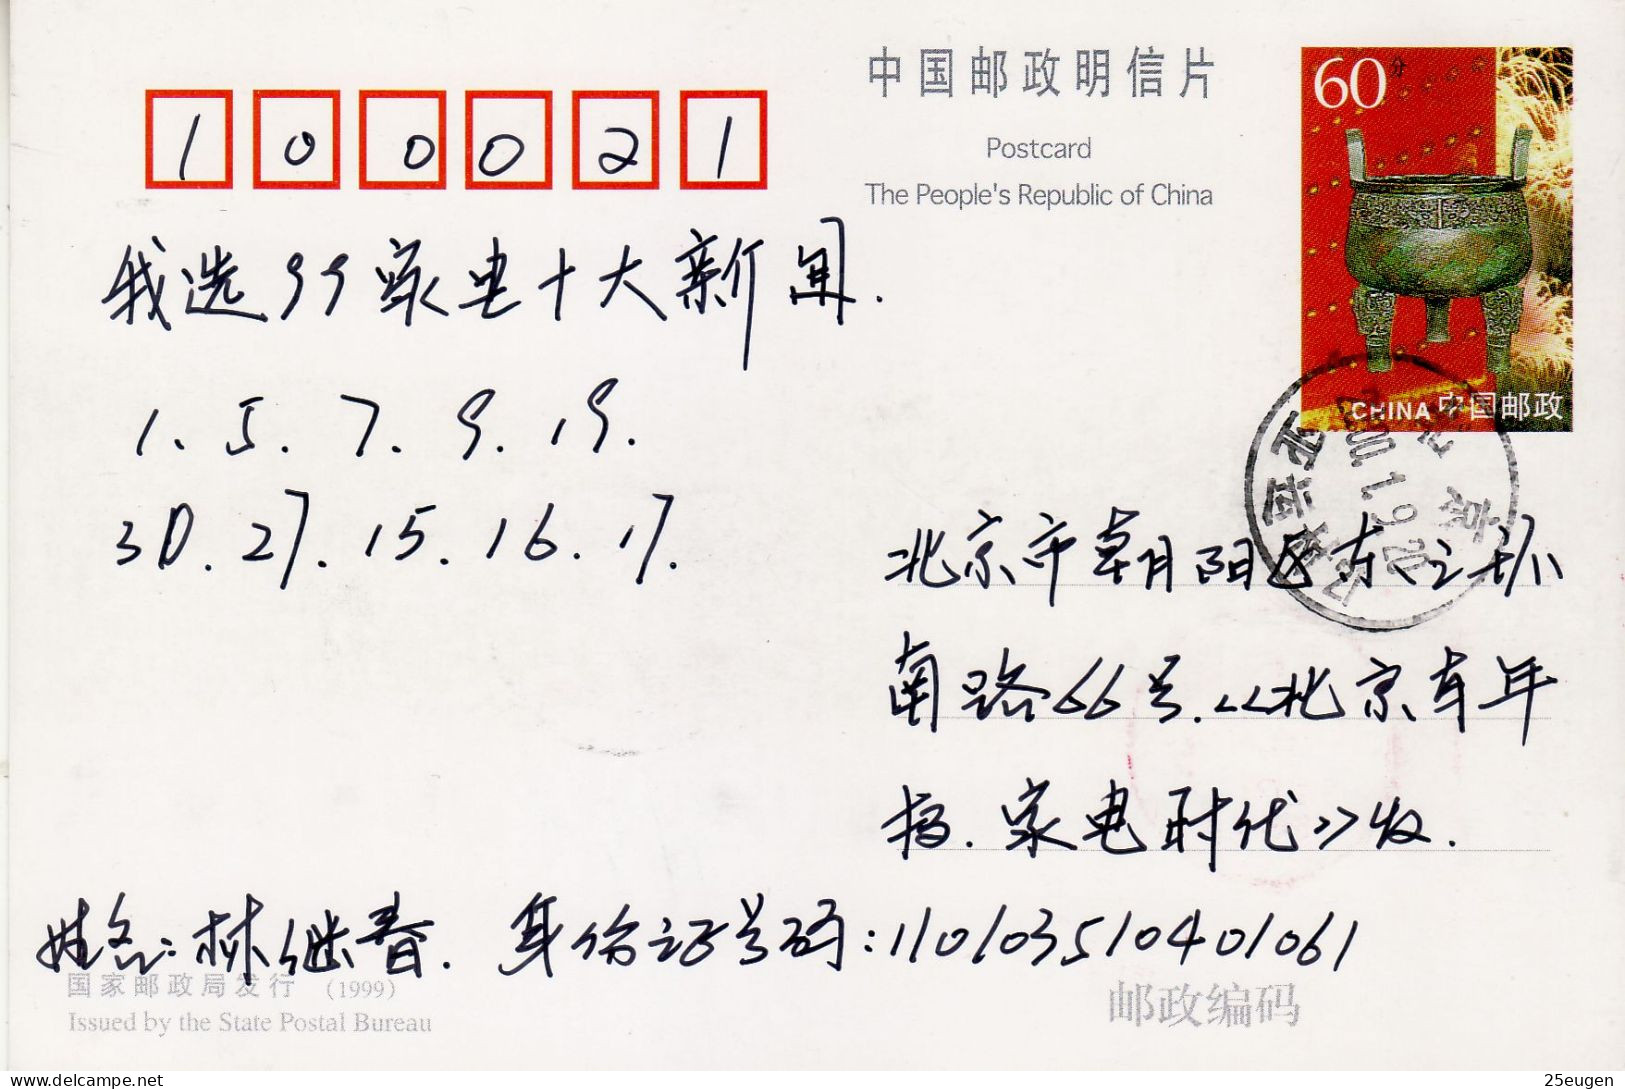 中国邮政明信片
Postcard
The People's Republic of China
60分
CHINA 中国邮政
100021
我选99家电十大新闻.
1. 5. 7. 9. 19.
30. 27. 15. 16. 17.
北京市朝阳区东三环
南路66号.《北京青年
报.家电时代》收.
姓名:林继春. 身份证号码:110103510401061
国家邮政局发行 (1999)
Issued by the State Postal Bureau
邮政编码
北京
25eugen